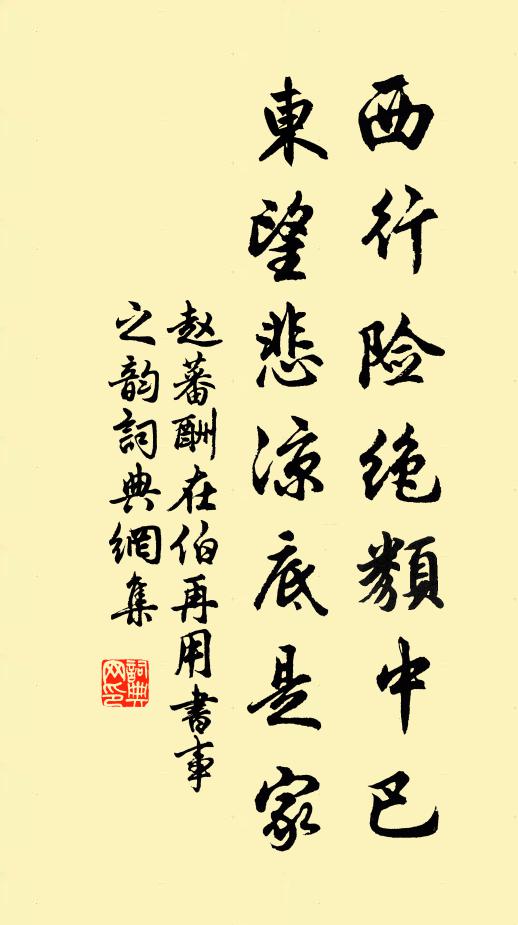 西行险绝類中巴
東望悲凉底是家
赵蕃酬在伯再用書事
之韵詞典網集
詞典网印